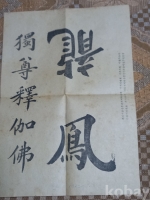 龍
鳳
獨尊釋伽佛
kobay